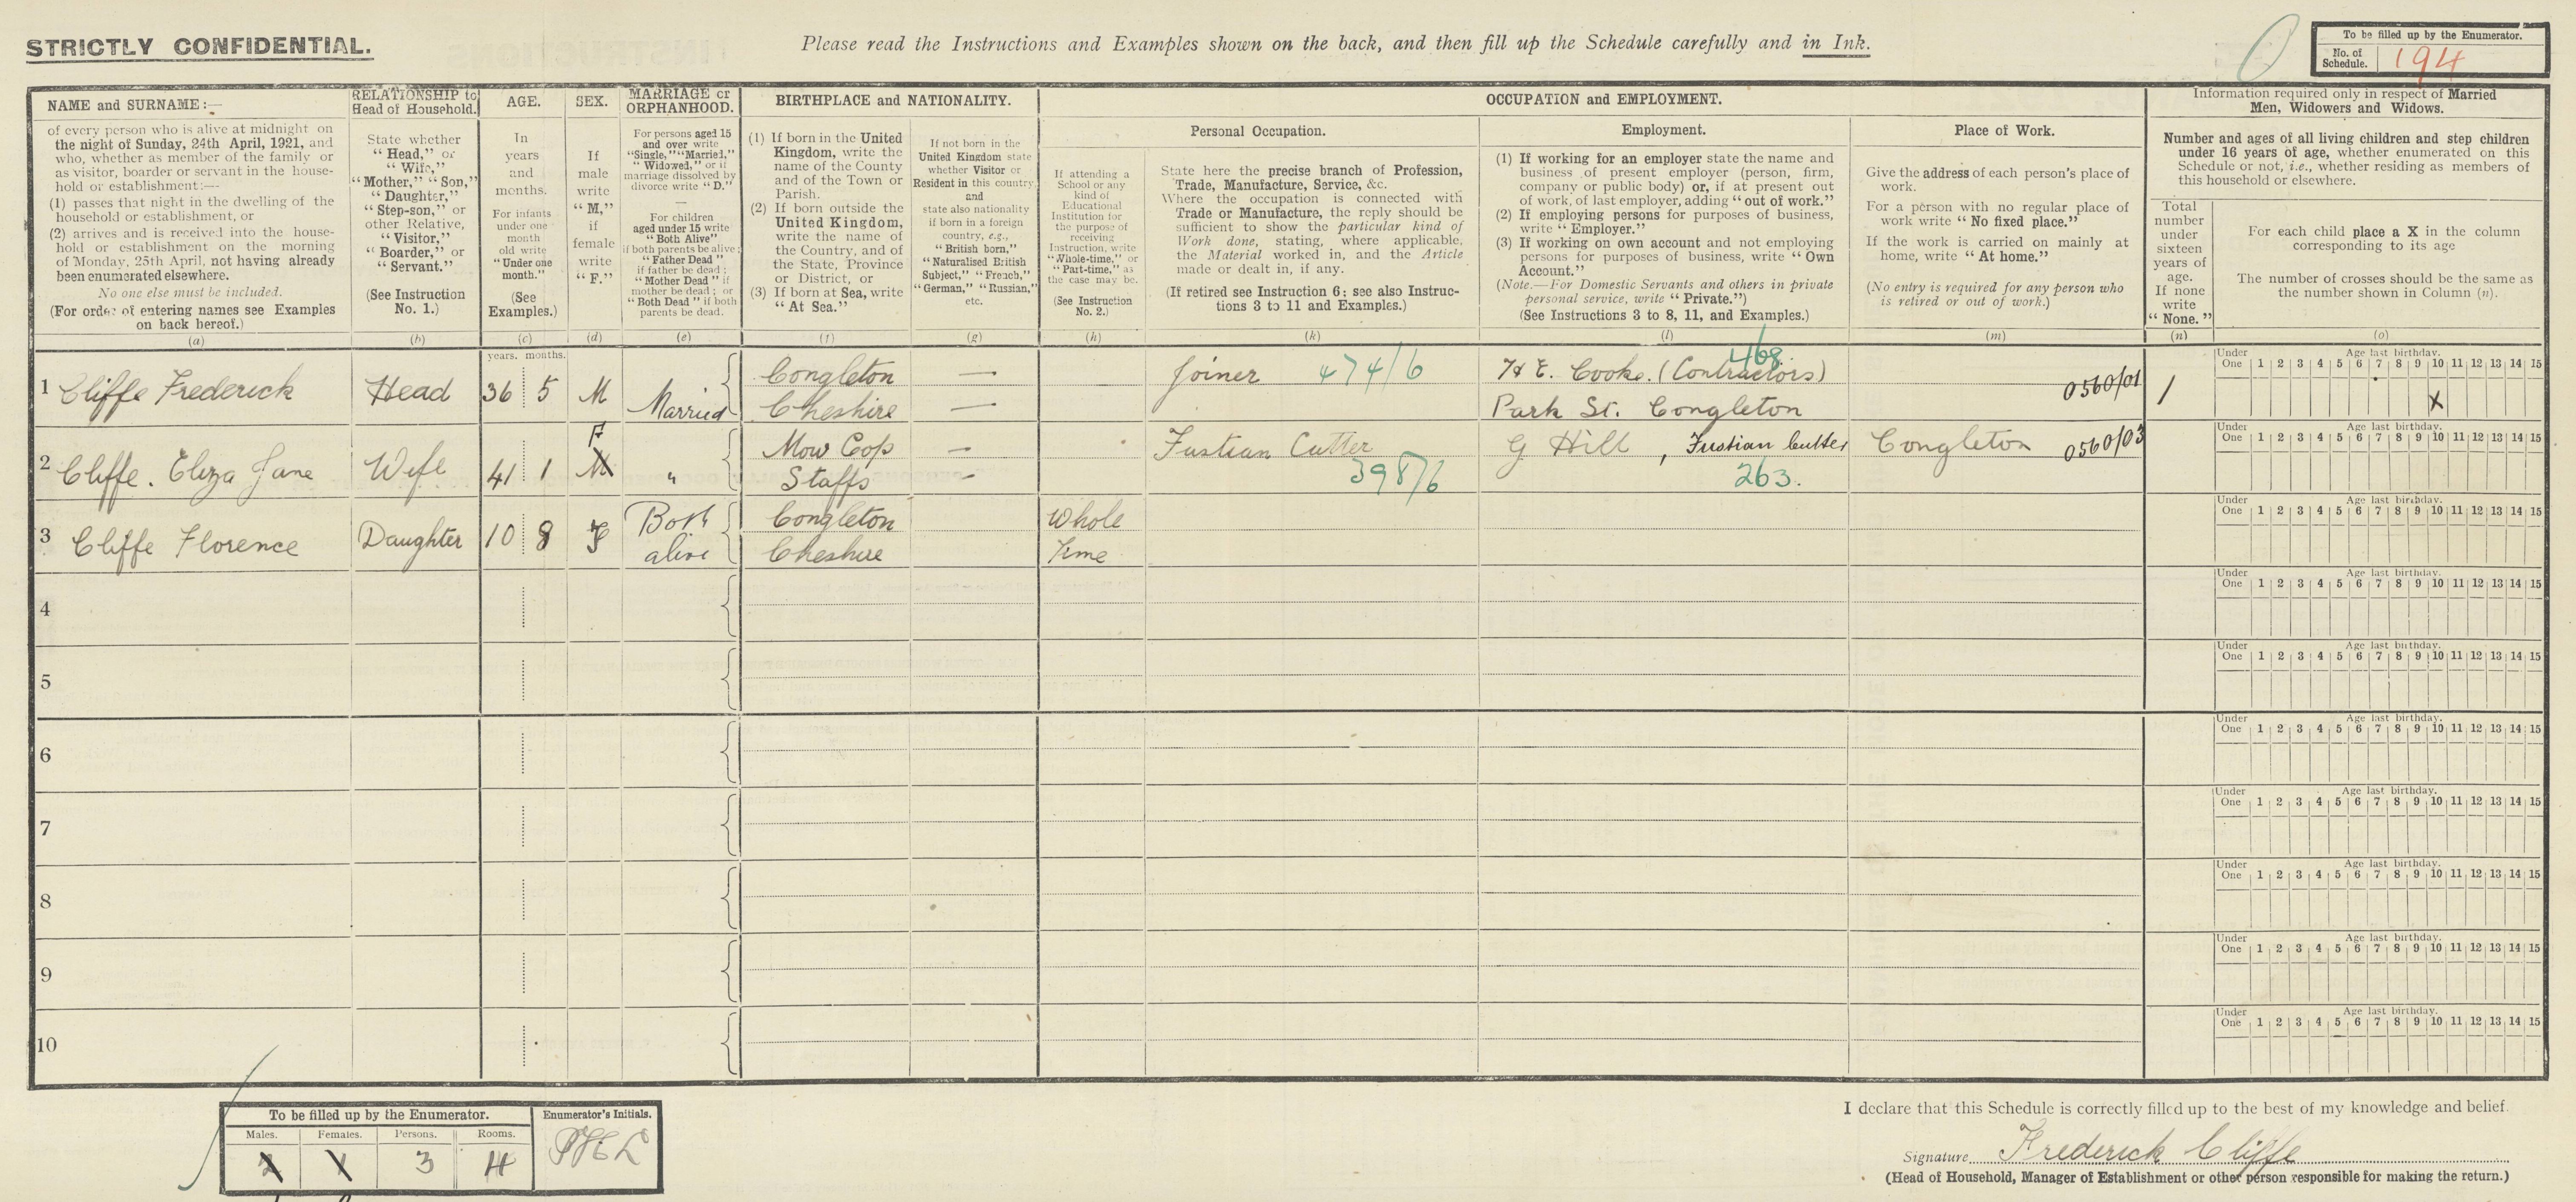 STRICTLY CONFIDENTIAL.
Please read the Instructions and Examples shown on the back, and then fill up the Schedule carefully and in Ink.
To be filled up by the Enumerator.
No. of Schedule. 194
NAME and SURNAME:—
of every person who is alive at midnight on
the night of Sunday, 24th April, 1921, and
who, whether as member of the family or
as visitor, boarder or servant in the house-
hold or establishment:—
(1) passes that night in the dwelling of the
household or establishment, or
(2) arrives and is received into the house-
hold or establishment on the morning
of Monday, 25th April, not having already
been enumerated elsewhere.
No one else must be included.
(For order of entering names see Examples
on back hereof.)
(a)
RELATIONSHIP to
Head of Household.
State whether
"Head," or
"Wife,"
"Mother," "Son,"
"Daughter,"
"Step-son," or
other Relative,
"Visitor,"
"Boarder," or
"Servant."
(See Instruction
No. 1.)
(b)
AGE.
In
years
and
months.
For infants
under one
month
old write
"Under one
month."
(See
Examples.)
(c)
SEX.
If
male
write
"M,"
if
female
write
"F."
(d)
MARRIAGE or
ORPHANHOOD.
For persons aged 15
and over write
"Single," "Married,"
"Widowed," or if
marriage dissolved by
divorce write "D."
—
For children
aged under 15 write
"Both Alive"
if both parents be alive;
"Father Dead"
if father be dead;
"Mother Dead" if
mother be dead; or
"Both Dead" if both
parents be dead.
(e)
BIRTHPLACE and NATIONALITY.
(1) If born in the United
Kingdom, write the
name of the County
and of the Town or
Parish.
(2) If born outside the
United Kingdom,
write the name of
the Country, and of
the State, Province
or District, or
(3) If born at Sea, write
"At Sea."
(f)
If not born in the
United Kingdom state
whether Visitor or
Resident in this country
and
state also nationality
if born in a foreign
country, e.g.,
"British born,"
"Naturalised British
Subject," "French,"
"German," "Russian,"
etc.
(g)
OCCUPATION and EMPLOYMENT.
If attending a
School or any
kind of
Educational
Institution for
the purpose of
receiving
Instruction, write
"Whole-time," or
"Part-time," as
the case may be.
(See Instruction
No. 2.)
(h)
Personal Occupation.
State here the precise branch of Profession,
Trade, Manufacture, Service, &c.
Where the occupation is connected with
Trade or Manufacture, the reply should be
sufficient to show the particular kind of
Work done, stating, where applicable,
the Material worked in, and the Article
made or dealt in, if any.
(If retired see Instruction 6; see also Instruc-
tions 3 to 11 and Examples.)
(k)
Employment.
(1) If working for an employer state the name and
business of present employer (person, firm,
company or public body) or, if at present out
of work, of last employer, adding "out of work."
(2) If employing persons for purposes of business,
write "Employer."
(3) If working on own account and not employing
persons for purposes of business, write "Own
Account."
(Note.—For Domestic Servants and others in private
personal service, write "Private.")
(See Instructions 3 to 8, 11, and Examples.)
(l)
Place of Work.
Give the address of each person's place of
work.
For a person with no regular place of
work write "No fixed place."
If the work is carried on mainly at
home, write "At home."
(No entry is required for any person who
is retired or out of work.)
(m)
Information required only in respect of Married
Men, Widowers and Widows.
Number and ages of all living children and step children
under 16 years of age, whether enumerated on this
Schedule or not, i.e., whether residing as members of
this household or elsewhere.
Total
number
under
sixteen
years of
age.
If none
write
"None."
(n)
For each child place a X in the column
corresponding to its age
The number of crosses should be the same as
the number shown in Column (n).
(o)
years. months.
Under One Age last birthday. 1 2 3 4 5 6 7 8 9 10 11 12 13 14 15
1 Cliffe Frederick Head 36 5 M Married Congleton — Joiner 474/6 H E. Cooke. (Contractors) 468 0560/01 1 X
Cheshire — Park St. Congleton
Under One Age last birthday. 1 2 3 4 5 6 7 8 9 10 11 12 13 14 15
2 Cliffe. Eliza Jane Wife 41 1 M F " Mow Cop — Fustian Cutter 398/6 G Hill, Fustian Cutter 263. Congleton 0560/03
Staffs —
Under One Age last birthday. 1 2 3 4 5 6 7 8 9 10 11 12 13 14 15
3 Cliffe Florence Daughter 10 8 F Both alive Congleton Whole
Cheshire Time
Under One Age last birthday. 1 2 3 4 5 6 7 8 9 10 11 12 13 14 15
4
Under One Age last birthday. 1 2 3 4 5 6 7 8 9 10 11 12 13 14 15
5
Under One Age last birthday. 1 2 3 4 5 6 7 8 9 10 11 12 13 14 15
6
Under One Age last birthday. 1 2 3 4 5 6 7 8 9 10 11 12 13 14 15
7
Under One Age last birthday. 1 2 3 4 5 6 7 8 9 10 11 12 13 14 15
8
Under One Age last birthday. 1 2 3 4 5 6 7 8 9 10 11 12 13 14 15
9
Under One Age last birthday. 1 2 3 4 5 6 7 8 9 10 11 12 13 14 15
10
To be filled up by the Enumerator.
Males. Females. Persons. Rooms.
2 1 3 4
Enumerator's Initials.
I declare that this Schedule is correctly filled up to the best of my knowledge and belief.
Signature Frederick Cliffe
(Head of Household, Manager of Establishment or other person responsible for making the return.)